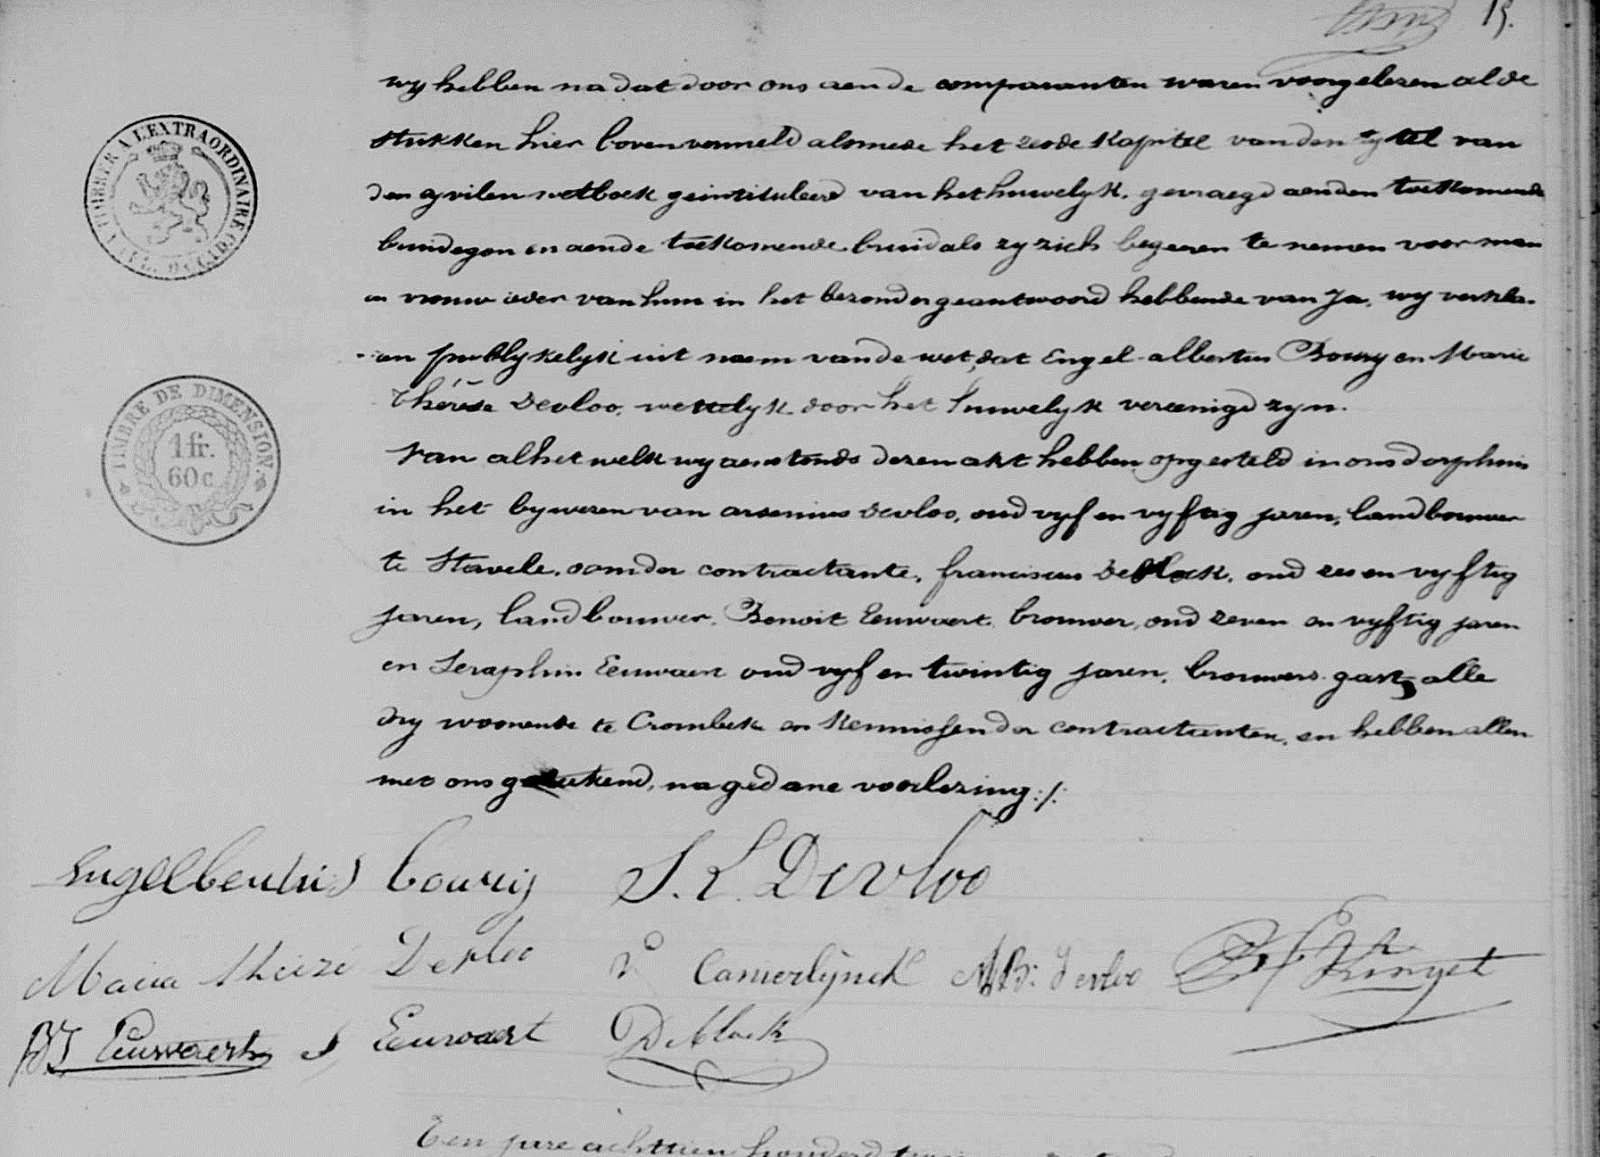 15.
wy hebben na dat door ons aen de comparanten waren voorgelezen al de
stukken hier boven vermeld alsmede het zesde Kapitel van den tytel van
den cyvilen wetboek geintituleerd van het huwelyk. gevraegd aen den toekomende
bruidegon en aende toekomende bruid als zy zich begeeren te nemen voor man
en vrouw ieder van hun in het bezonder geantwoord hebbende van Ja, wy verkla-
-en publykelyk uit naem van de wet, dat Engel-albertus Boury en Marie
Thérèse Devloo, wettelyk door het huwelyk vereenigd zyn.
Van al het welk wy aenstonds dezen akt hebben opgesteld in ons dorphuis
in het bywezen van arsenius Devloo, oud vyf en vyftig jaren, landbouwer
te Stavele, oom der contractante, franciscus Deblock, oud zes en vyftig
jaren, landbouwer, Benoit Eeuwaert brouwer, oud zeven en vyftig jaren
en Seraphin Eeuwaert oud vyf en twintig jaren, brouwers gast, alle
dry woonende te Crombeke en Kennissen der contractanten, en hebben allen
met ons geteekend, na gedane voorlezing ./.
Engelbertus Bourij S. L. Devloo
Maria Therese Devloo Camerlijnck Devloo
BJ Eeuwaert S Eeuwaert Deblock
Een jare achttien honderd
A L'EXTRAORDINAIRE
TIMBRE DE DIMENSION
1 fr.
60 c